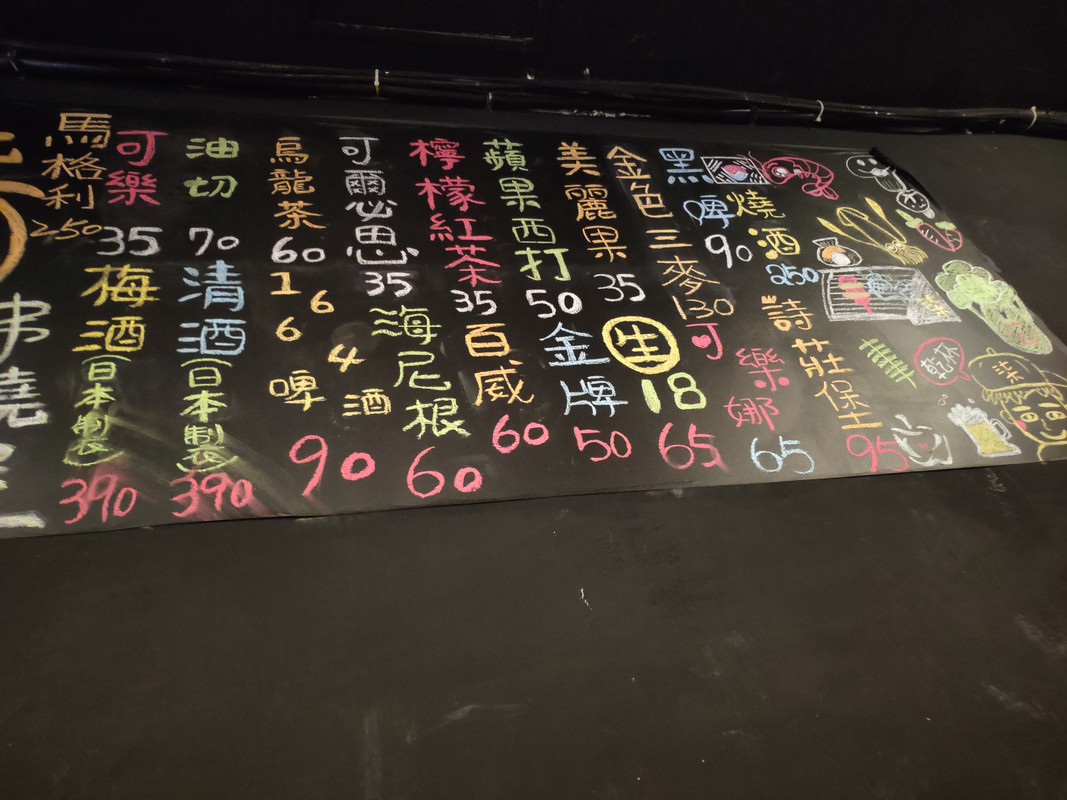 乾杯
燒酒
250
詩莊保士
95
黑啤
90
可樂娜
65
金色三麥
130
生
18
65
美麗果
35
金牌
50
蘋果西打
50
百威
60
檸檬紅茶
35
海尼根
60
可爾必思
35
烏龍茶
60
1664啤酒
90
油切
70
清酒
(日本製)
390
可樂
35
梅酒
(日本製)
390
馬格利
250
燒